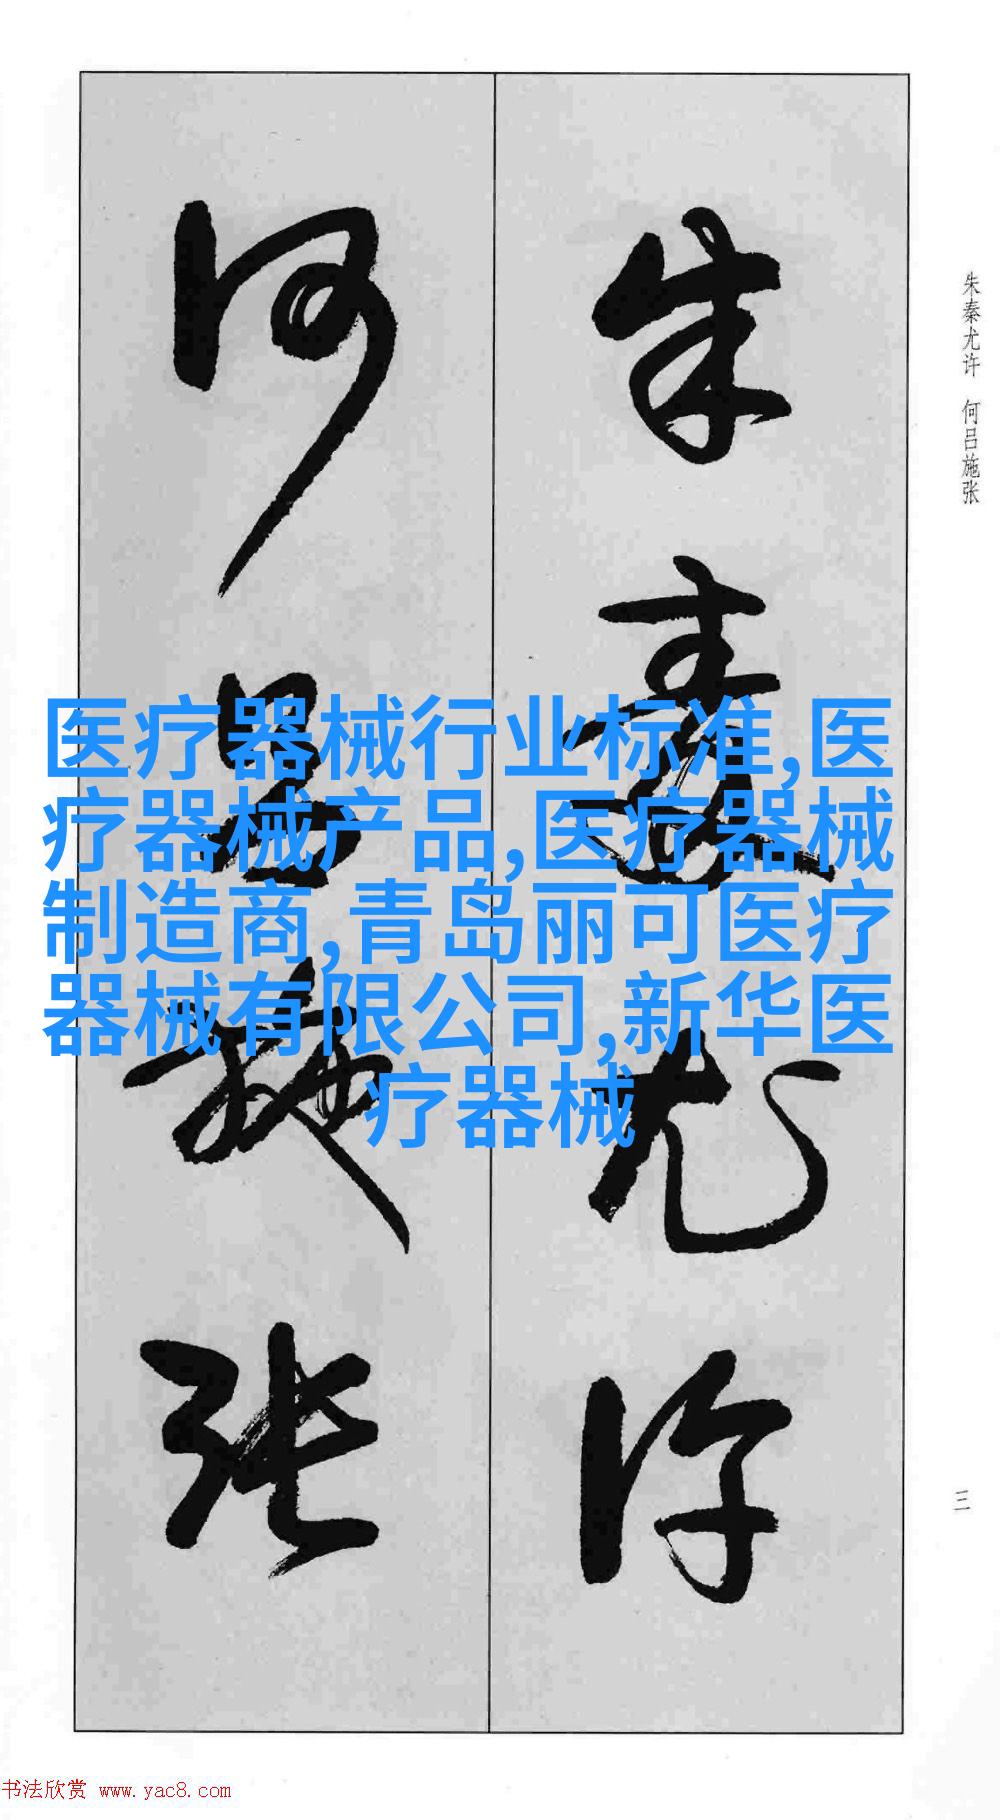 朱秦尤许
何吕施张
朱秦尤许 何吕施张
医疗器械行业标准,医
疗器械产品,医疗器械
制造商,青岛丽可医疗
器械有限公司,新华医
疗器械
三
书法欣赏 www.yac8.com